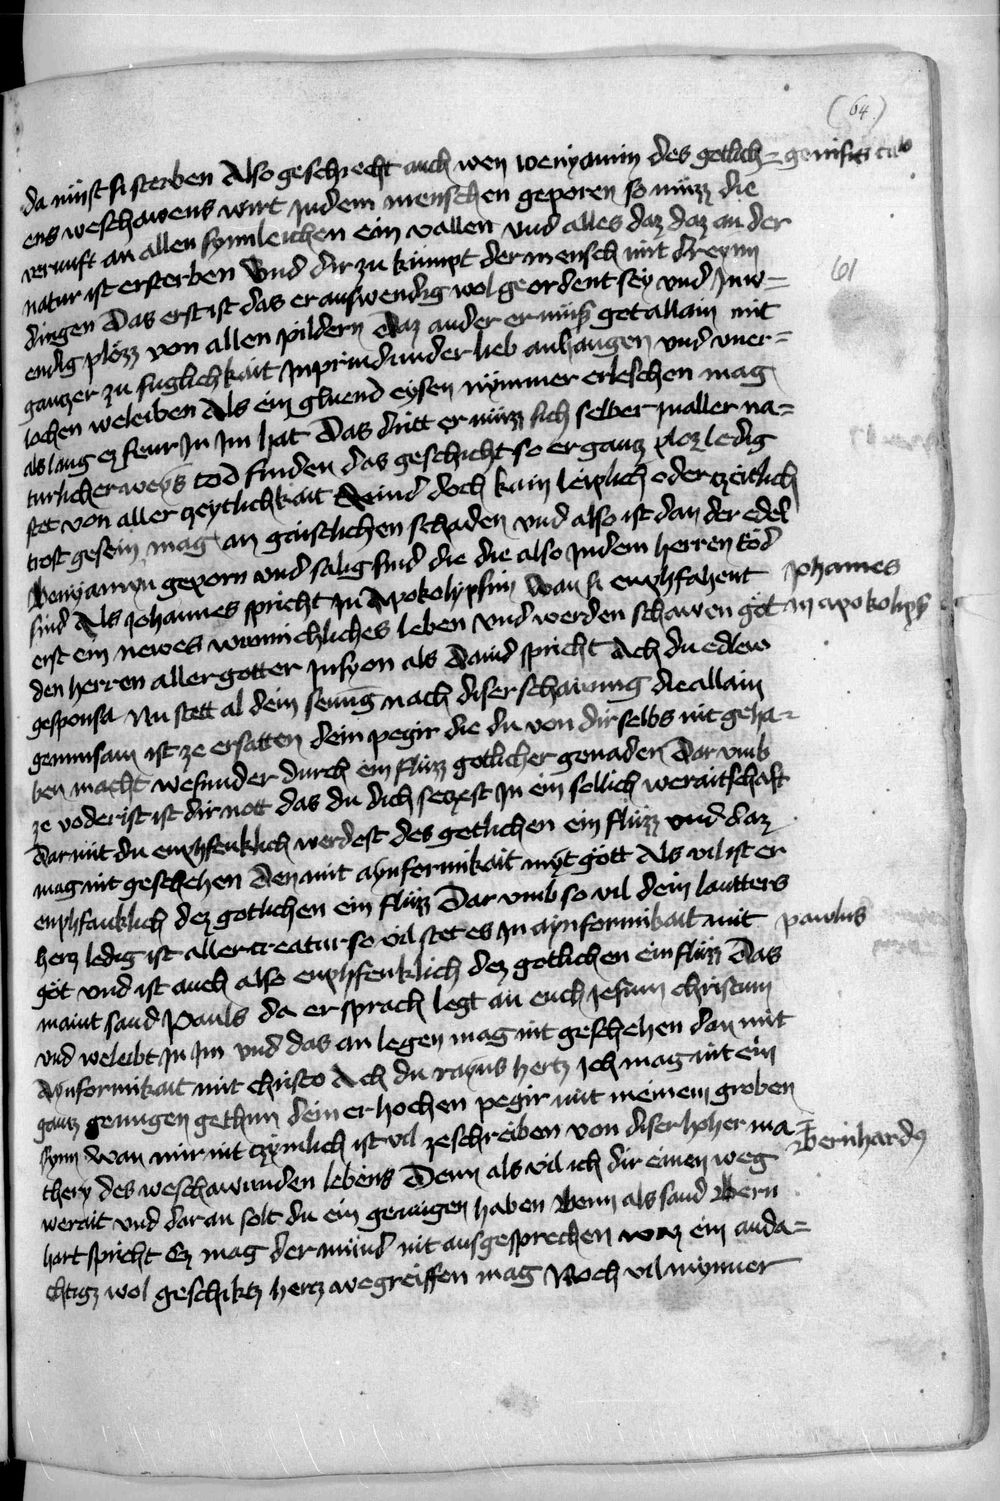 (64)
da müst si sterben Also geschecht auch wen wenyamin des gotlich= genisis
ens weschawens wirt Jn dem menschen geporen so müzz die
vernuft an allen synnleichen ein vallen vnd alles daz daz an der
natur ist ersterben Vnd dir zu kumpt der mensch mit dreynn
dingen Das erst ist das er auswendig wol geordent sey vnd Jnw=
endig plözz von allen pildern Daz ander er müss got allain mit
gantzer zu fuglichkait Jnprinstunder lieb anhangen vnd vner=
lochen weleiben Als ein gluend eysen nymmer erleschen mag
als lang ez feur Jn Jm hat Das dritt er müzz sich selber Jn aller na=
turlicher weys tod finden das geschicht so er gantz ploz ledig
stet von aller zeytlichkait vnd doch kain leiplich oder zeitlich
trost gesein mag an gaistlichen schaden vnd also ist dan der edel
Wenyamyn geporn vnd salig sind die die also Jn dem herren töd
sind Als Johannes spricht Jn Apokolypsim Wan si enphahent Johannes
erst ein newes wunnichliches leben vnd werden schawen göt in apokolips
den herren aller gotter Jn syon als Dauid spricht Ach du edlew
gesponsa Nu stett al dein senüg nach diser schauung die allain
genunsam ist ze ersatten dein pegir die du von dir selbs nit geha=
ben macht wesunder durch ein fluzz gotlicher genaden Dar vmb
ze voderist ist dir nott das du dich setzest Jn ein sollich weraitschaft
Dar mit du enphfenklich werdest des gotlichen ein fluzz vnd daz
mag nit geschehen Den mit aynformikait myt gött Als vil ist er
enphfanklich dez gotlichen ein fluzz Dar vmb so vil dein lautters
hertz ledig ist aller creatur so vil stet es Jn aynformikait mit pawlus
göt vnd ist auch also enphfenklich dez gotlichen ein fluzz Das
maint sand Pauls da er sprach legt an euch Jesum christum
vnd weleibt Jn Jm vnd das an legen mag nit geschehen dan mit
Aynformikait mit christo Ach du rayns hertz Jch mag nit ein
gantz genugen gethun dein er hochen pegir mit meinem groben
synn Wan mir nit zymlich ist vil ze schreiben von diser hoher ma= Bernhardus
thery des weschawunden lebens Denn als vil ich dir einen weg
werait vnd dar an solt du ein genugen haben Wenn als sand Bern
hart spricht Ez mag der münd nit ausgesprechen waz ein anda=
chtigz wol geschiktz hertz wegreiffen mag Noch vil mynner
61